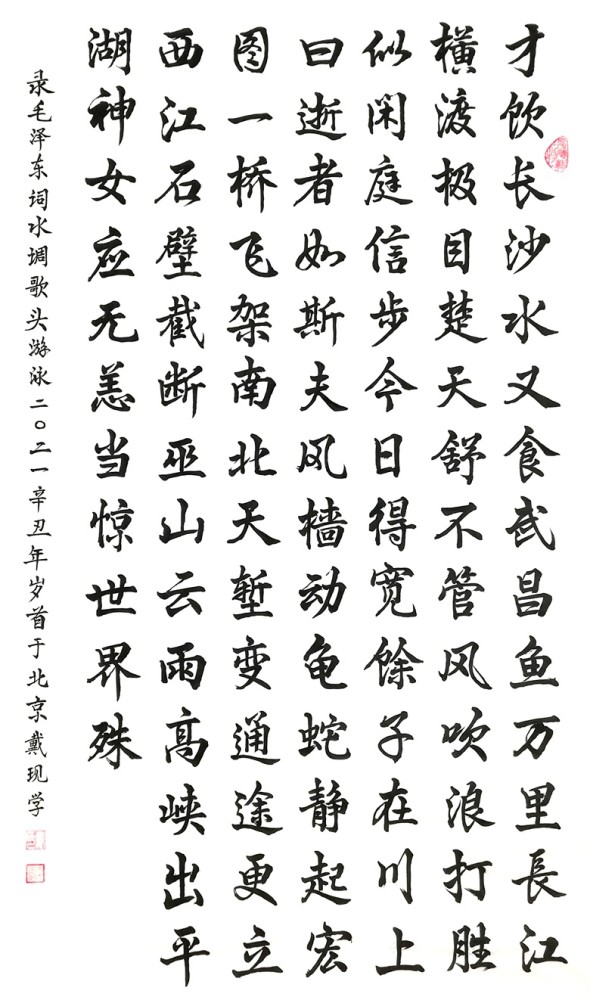 才饮长沙水又食武昌鱼万里長江
横渡极目楚天舒不管风吹浪打胜
似闲庭信步今日得宽馀子在川上
曰逝者如斯夫风樯动龟蛇静起宏
图一桥飞架南北天堑变通途更立
西江石壁截断巫山云雨高峡出平
湖神女应无恙当惊世界殊
录毛泽东词水调歌头游泳二〇二一辛丑年岁首于北京戴现学